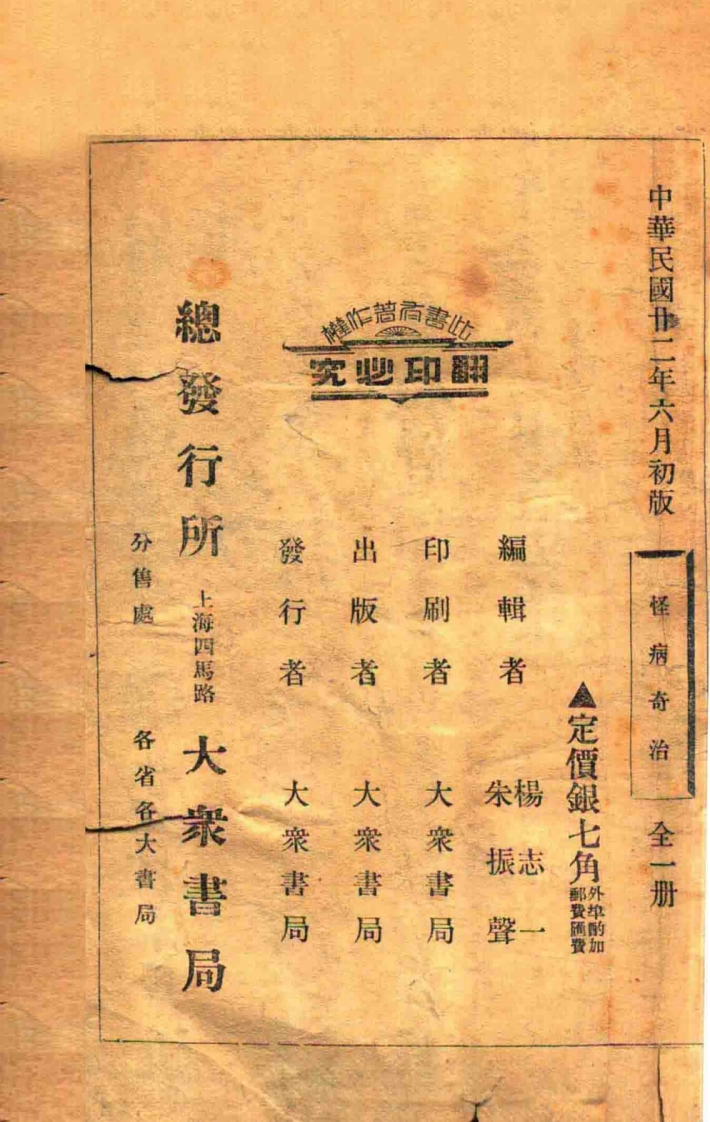 中華民國廿二年六月初版
怪病奇治
全一册
▲定價銀七角
外埠酌加
郵費匯費
編輯者 楊志一
朱振聲
印刷者 大衆書局
出版者 大衆書局
發行者 大衆書局
此書有著作權
翻印必究
總發行所 上海四馬路 大衆書局
分售處 各省各大書局